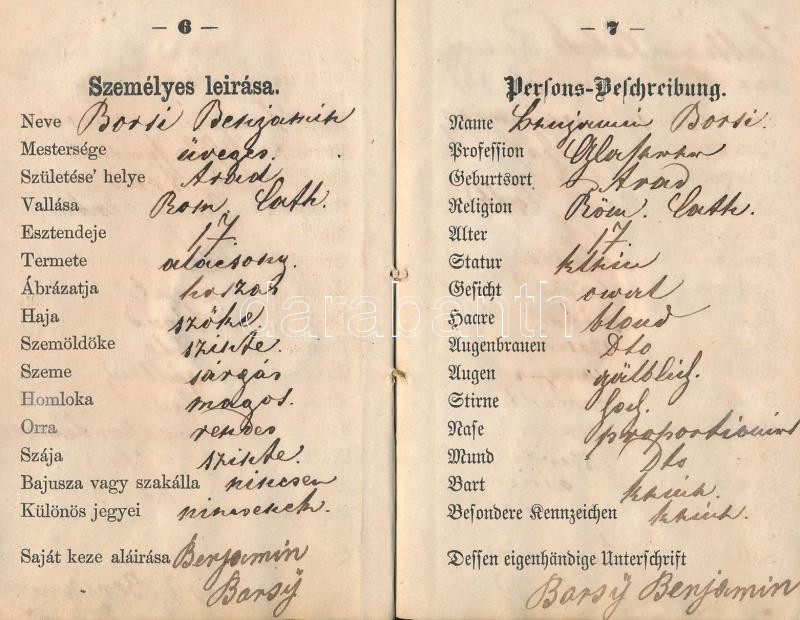 — 6 —
Személyes leirása.
Neve Borsi Benjamin
Mestersége üveges.
Születése' helye Arad
Vallása Rom. Cath.
Esztendeje 17.
Termete alacsony.
Ábrázatja hoszas
Haja szőke.
Szemöldöke szinte.
Szeme sárgás
Homloka magos.
Orra rendes
Szája szinte.
Bajusza vagy szakálla nincsen
Különös jegyei nincsenek.
Saját keze aláirása Benjamin
Barsÿ
— 7 —
Persons-Beschreibung.
Name Benjamin Borsi.
Profession Glaserer
Geburtsort Arad
Religion Röm. Cath.
Alter 17.
Statur klein
Gesicht owal
Haare blond
Augenbrauen Dto
Augen gälblich.
Stirne hoch.
Nase proportionirt
Mund Dto
Bart keine.
Besondere Kennzeichen keine.
Dessen eigenhändige Unterschrift
Barsÿ Benjamin
darabanth